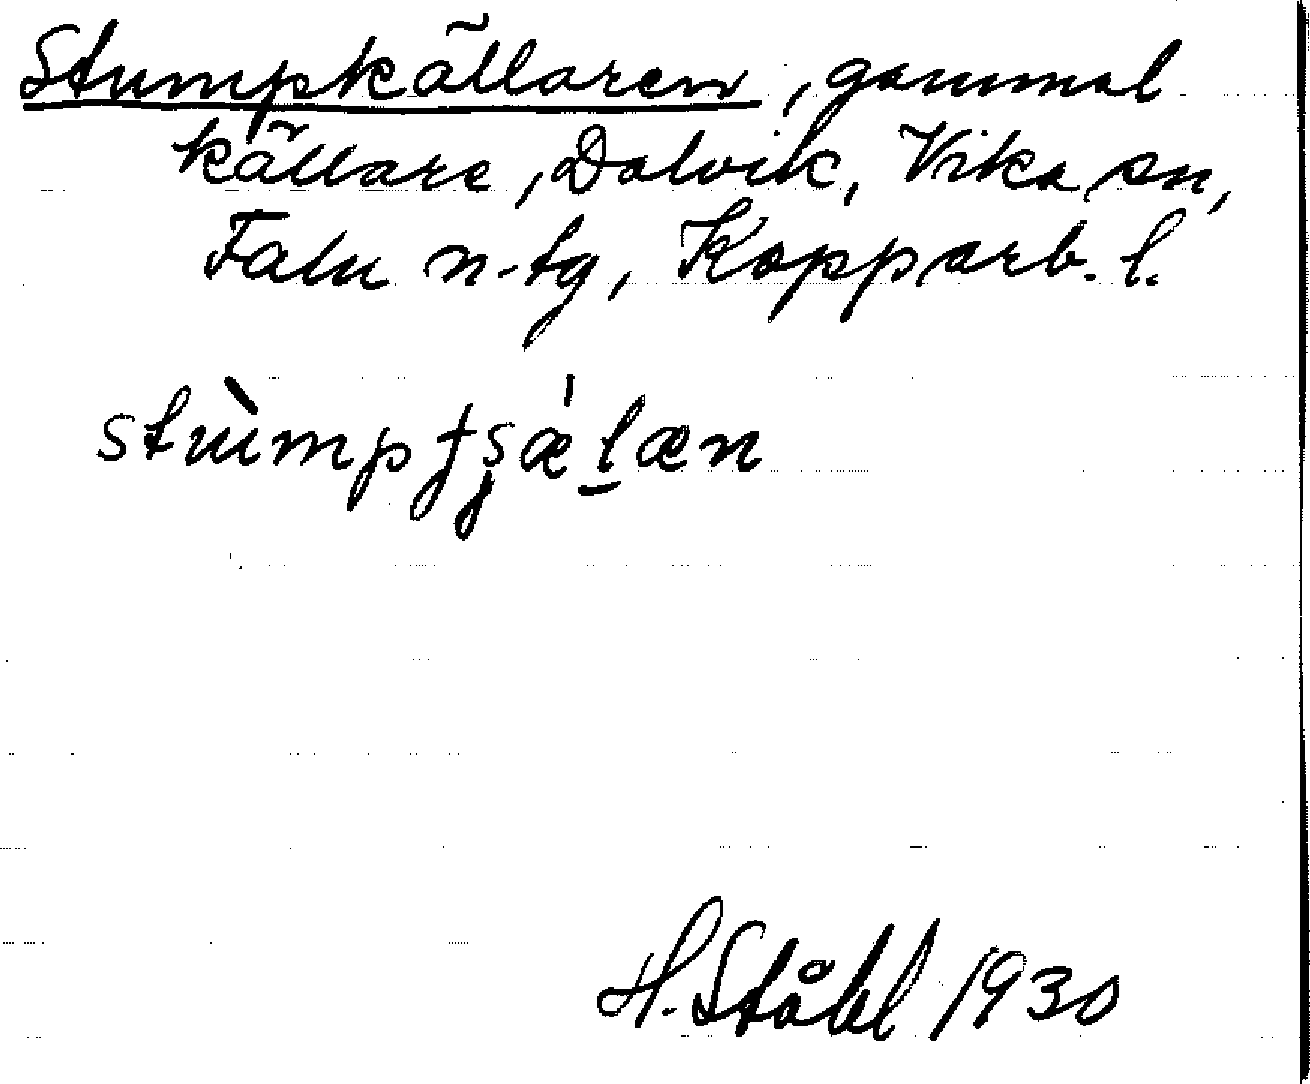 Stumpkällaren, gammal
källare, Dalvik, Vika sn,
Falu n-tg, Kopparb. l.
stùmpʈʂǽlæn
H. Ståhl 1930